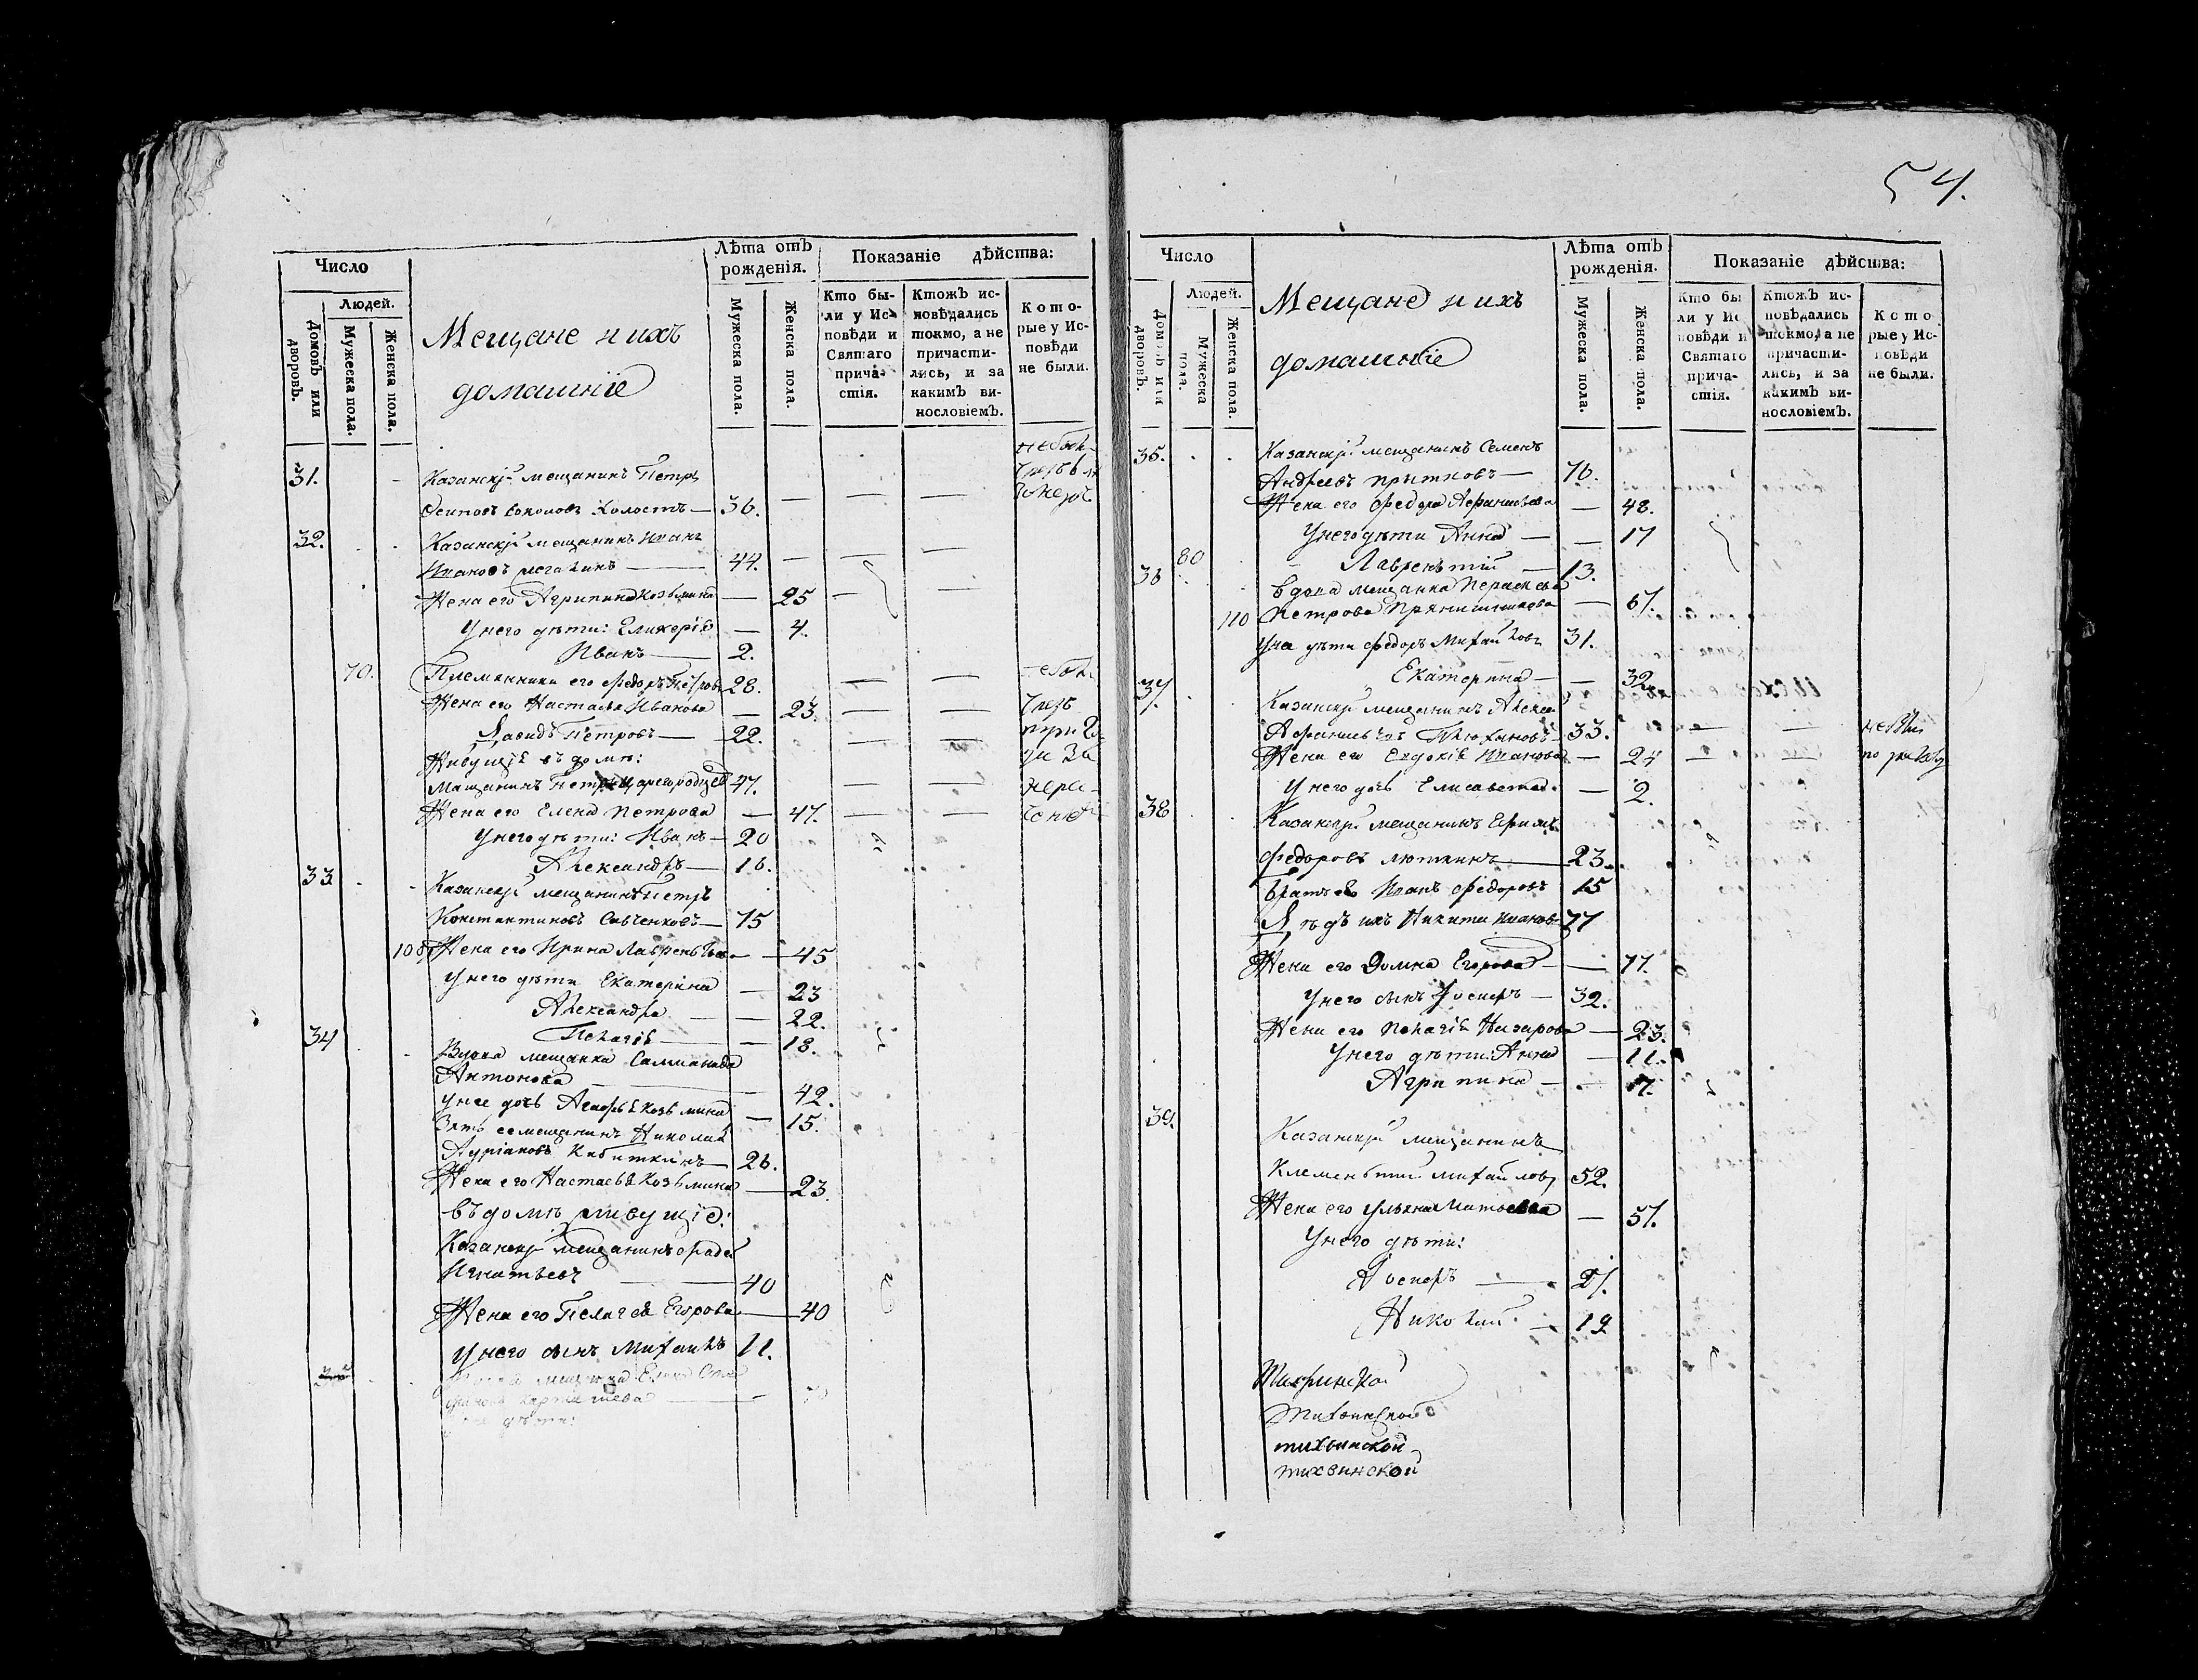 54.
Число
Людей.
Домовъ или дворовъ.
Мужеска пола.
Женска пола.
Мещане и ихъ
домашніе
Лѣта отъ рожденія.
Мужеска пола.
Женска пола.
Показаніе дѣйства:
Кто бы-
ли у Ис-
повѣди и
Святаго
прича-
стія.
Ктожъ ис-
повѣдались
токмо, а не
причасти-
лись, и за
какимъ ви-
нословіемъ.
Кото-
рые у Ис-
повѣди
не были.
31. Казанскій мещанинъ Петръ
Осиповъ Холостъ — 36. — — —
32. Казанскій мещанинъ Иванъ
Ивановъ — 44. — — —
Жена его Агрипина Козьмина — 25 — —
У него дѣти: Гликерія — 4.
Иванъ — 2.
70. Племянники его Федоръ Петровъ 28. — —
Жена его Настасья Иванова — 23. — —
Давидъ Петровъ — 22. — —
Живущіе въ домѣ:
Мещанинъ Петръ Царегородцевъ 47. — —
Жена его Елена Петрова — 47. — —
У него дѣти: Иванъ — 20
Александръ — 16.
33. Казанскій мещанинъ Петръ
Константиновъ Савченковъ — 75
108 Жена его Ирина Лаврентьева — 45
У него дѣти Екатерина — 23
Александра — 22.
Пелагія — 18.
34 Вдова мещанка Саломанида
Антонова — 42.
У нее дочь Козьмина — 15.
Зять ее мещанинъ Николай
Кибиткинъ — 26.
Жена его Настасья Козьмина — 23.
Въ домѣ живущіе:
Казанскій мещанинъ Фадей
Игнатьевъ — 40
Жена его Пелагея Егорова — 40
У него сынъ Михаилъ 11.
мещанка Елена
дѣти:
Число
Людей.
Домовъ или дворовъ.
Мужеска пола.
Женска пола.
Мещане и ихъ
домашніе
Лѣта отъ рожденія.
Мужеска пола.
Женска пола.
Показаніе дѣйства:
Кто бы
ли у Ис
повѣди и
Святаго
прича-
стія.
Ктожъ ис-
повѣдались
токмо, а не
причасти-
лись, и за
какимъ ви-
нословіемъ.
Кото
рые у Ис-
повѣди
не были.
35. Казанскій мещанинъ Семенъ
Андреевъ Прытковъ — 76.
Жена его Федора Афанасьева — 48.
У него дѣти Анна — 17
80 Лаврентій — 13.
36 Вдова мещанка Парасковья
110 Петрова Прянишникова — 67.
У нея дѣти Федоръ Михайловъ 31.
Екатерина — 32.
37. Казанскій мещанинъ Алексей
Афанасьевъ 33. — —
Жена его Евдокія Иванова — 24 — —
У него дочь Елисавета — 2.
38 Казанскій мещанинъ Ефимъ
Федоровъ Люткинъ — 23.
Братъ его Иванъ Федоровъ 15
Дѣдъ ихъ Никита Ивановъ 77
Жена его Домна Егорова — 77.
У него сынъ Іосифъ — 32.
Жена его Пелагія Назарова — 23.
У него дѣти: Анна — 11.
Агрипина —
39. Казанскій мещанинъ
Клементій Михайловъ 52.
Жена его Ульяна Матвеева — 57.
У него дѣти:
Іосифъ — 27.
Николай — 19
Тихвинской
тихвинской
тихвинской